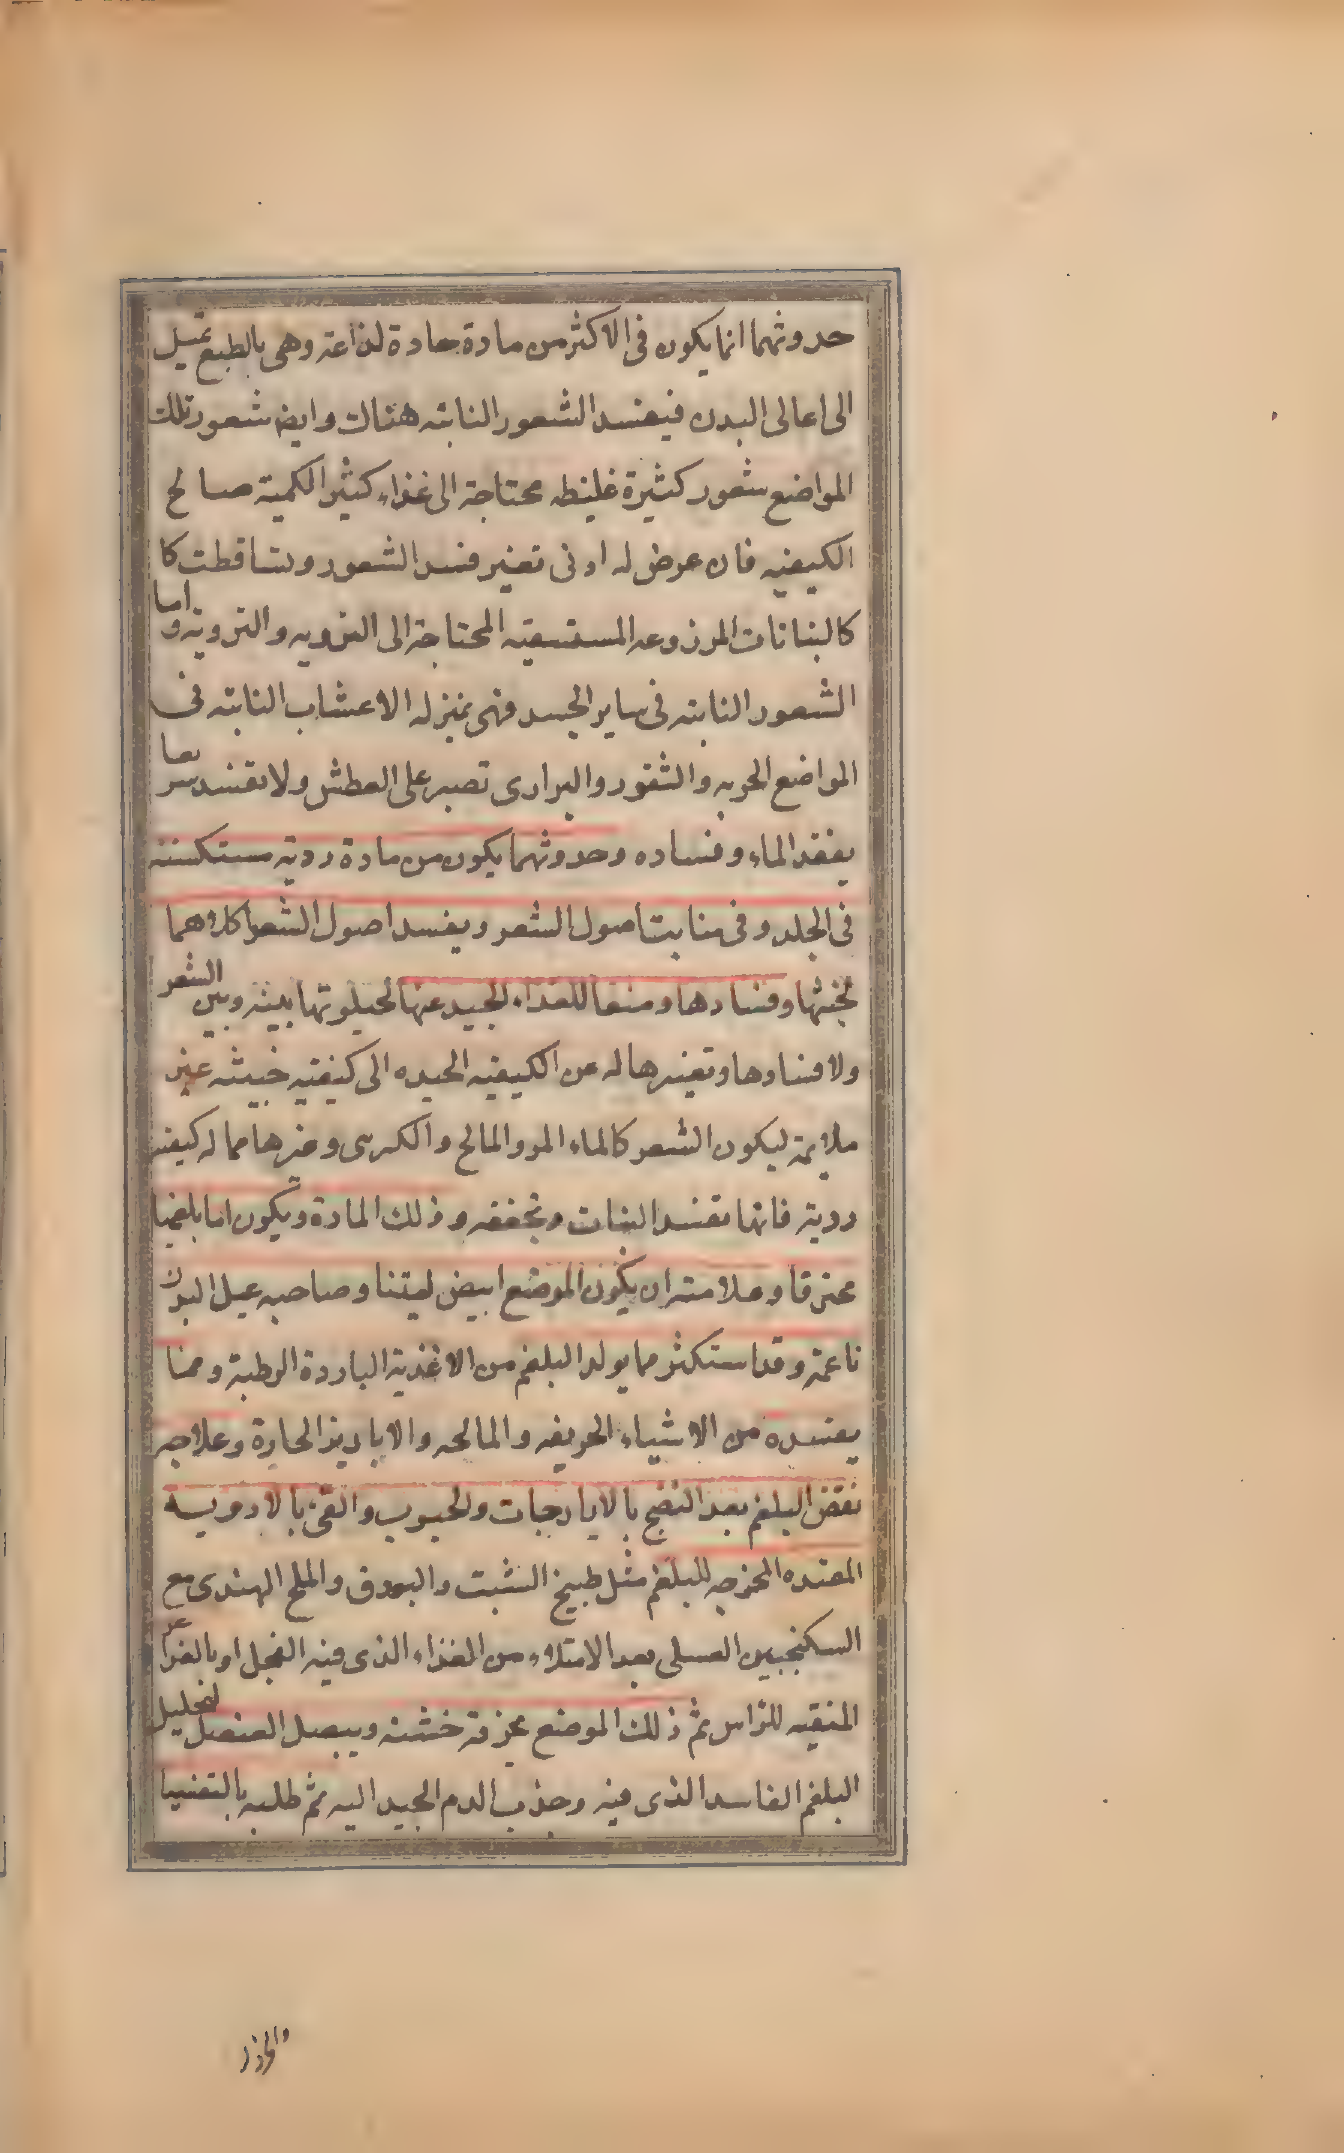 حدوثهما انما يكون فى الاكثر من مادة حادة لذاعة وهى بالطبع تميل
الى اعالى البدن فيفسد الشعور النابته هناك وايض شعور تلك
المواضع شعور كثيرة غليظه محتاجة الى غذاء كثير الكمية صالح
الكيفيه فان عرض له ادنى تغير فسد الشعور وتساقطت كا
كالنباتات المزروعه المستسقيه المحتاجة الى التزويه والترويه واما
الشعور النابته فى ساير الجسد فهى بمنزله الاعشاب النابته فى
المواضع الحربه والثغور والبرارى تصبر على العطش ولا تفسد سريعا
بفقد الماء وفساده وحدوثهما يكون من مادة ردية مستكنته
فى الجلد وفى منابت اصول الشعر ويفسد اصول الشعر اكلاهما
لخبثها وفسادها ومنعا للغذاء الجيد عنها لحيلوتها بينه وبين الشعر
ولافسادها وتغيرها له عن الكيفيه الجيده الى كيفيه خبيثه غير
ملايمة ليكون الشعر كالماء المر والمالح والكبريتى وغيرها مما له كيفية
ردية فانها تفسد النبات وتجففه وذلك المادة ويكون اما بلغميا
محترقا وعلامته ان يكون الموضع ابيض لينا وصاحبه عبل البدن
ناعمة وقد استكثر مما يولد البلغم من الاغذية الباردة الرطبة ومما
يفسده من الاشياء الحريفه والمالحه والابازير الحارة وعلاجه
نفض البلغم بعد النضج بالايارجات والحبوب والقئ بالادوية
المعنده المخرجه للبلغم مثل طبيخ الشبت والبورق والملح الهندى مع
السكنجبين العسلى بعد الامتلاء من الغذاء الذى فيه الفجل او بالغراغر
المنقيه للرأس ثم ذلك الموضع بخرقة خشنه وببصل العنصل لتحليل
البلغم الفاسد الذى فيه وجذب الدم الجيد اليه ثم طلبه بالتفنيا